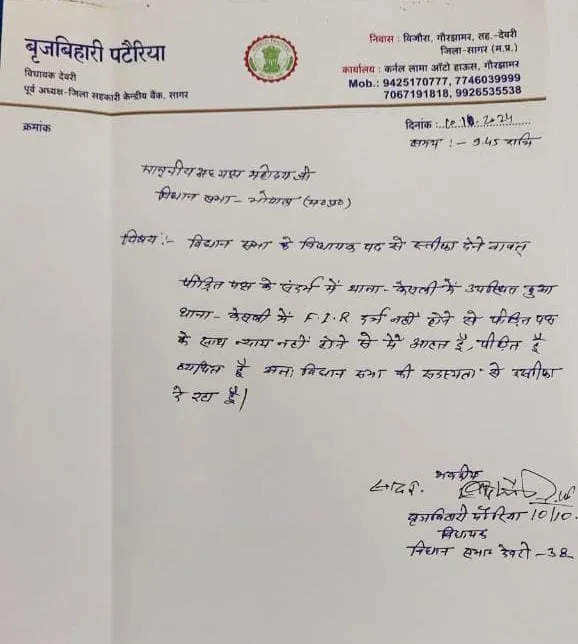 बृजबिहारी पटैरिया
विधायक देवरी
पूर्व अध्यक्ष-जिला सहकारी केन्द्रीय बैंक, सागर
निवास : बिजौरा, गौरझामर, तह.-देवरी
जिला-सागर (म.प्र.)
कार्यालय : कर्नल लामा ऑटो हाऊस, गौरझामर
Mob.: 9425170777, 7746039999
7067191818, 9926535538
क्रमांक
दिनांक : 10.10.2024
समय :- 9.45 रात्रि
माननीय अध्यक्ष महोदय जी
विधान सभा - भोपाल (म०प्र०)
विषय :- विधान सभा के विधायक पद से स्तीफा देने बावत्
पीड़ित पक्ष के संदर्भ में थाना - केसली में उपस्थित हुआ
थाना - केसली में F.I.R दर्ज नहीं होने से पीड़ित पक्ष
के साथ न्याय नहीं होने से मैं आहत हूँ, पीड़ित हूँ
व्यथित हूँ अतः विधान सभा की सदस्यता से स्तीफा
दे रहा हूँ।
भवदीय
सादर.
बृजबिहारी पटैरिया 10/10.
विधायक
विधान सभा देवरी - 38